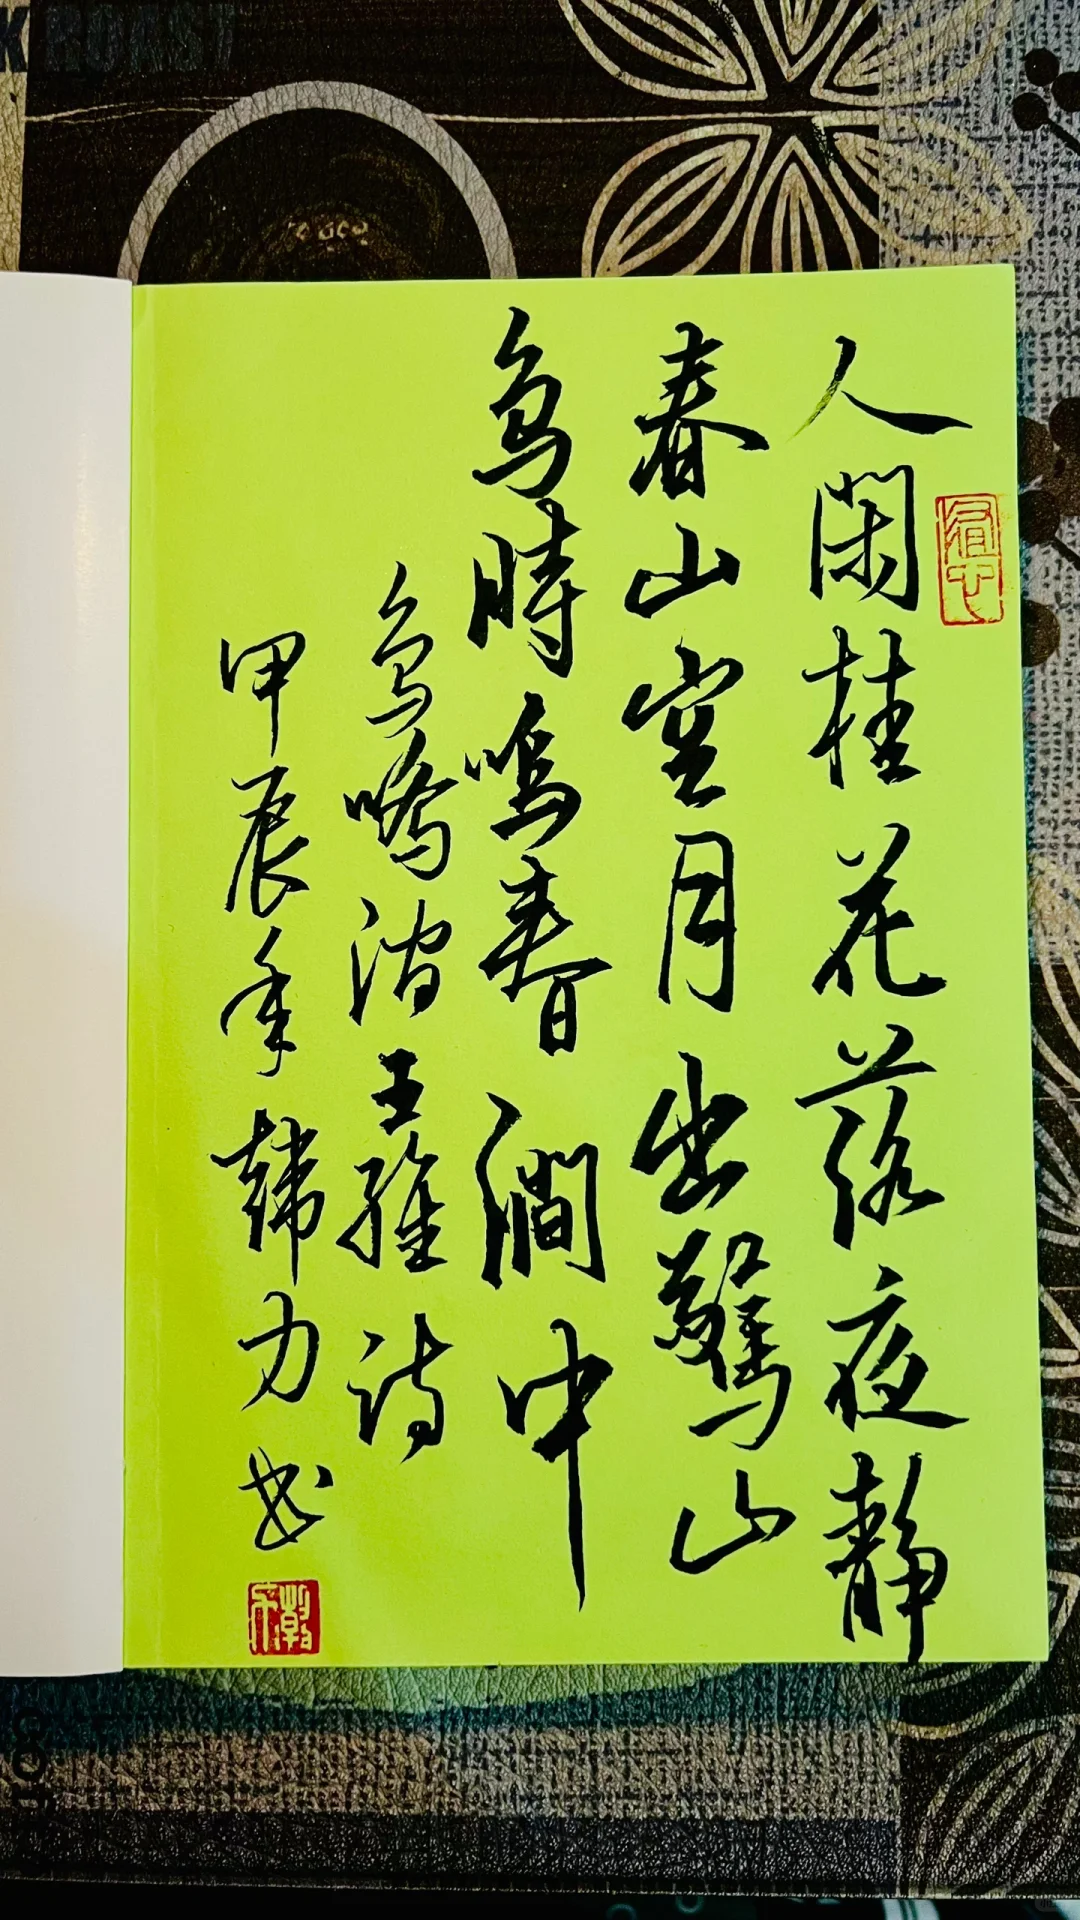 K ROAST
人閑桂花落夜靜
春山空月出驚山
鳥時鳴春澗中
鳥鳴澗王維詩
甲辰年韓力书